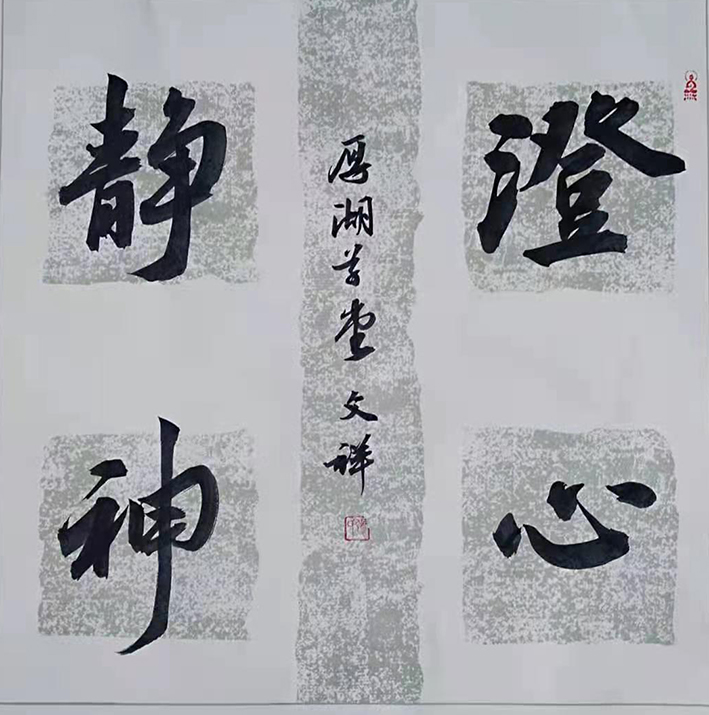 澄心
静神
厚湖草堂 文祥